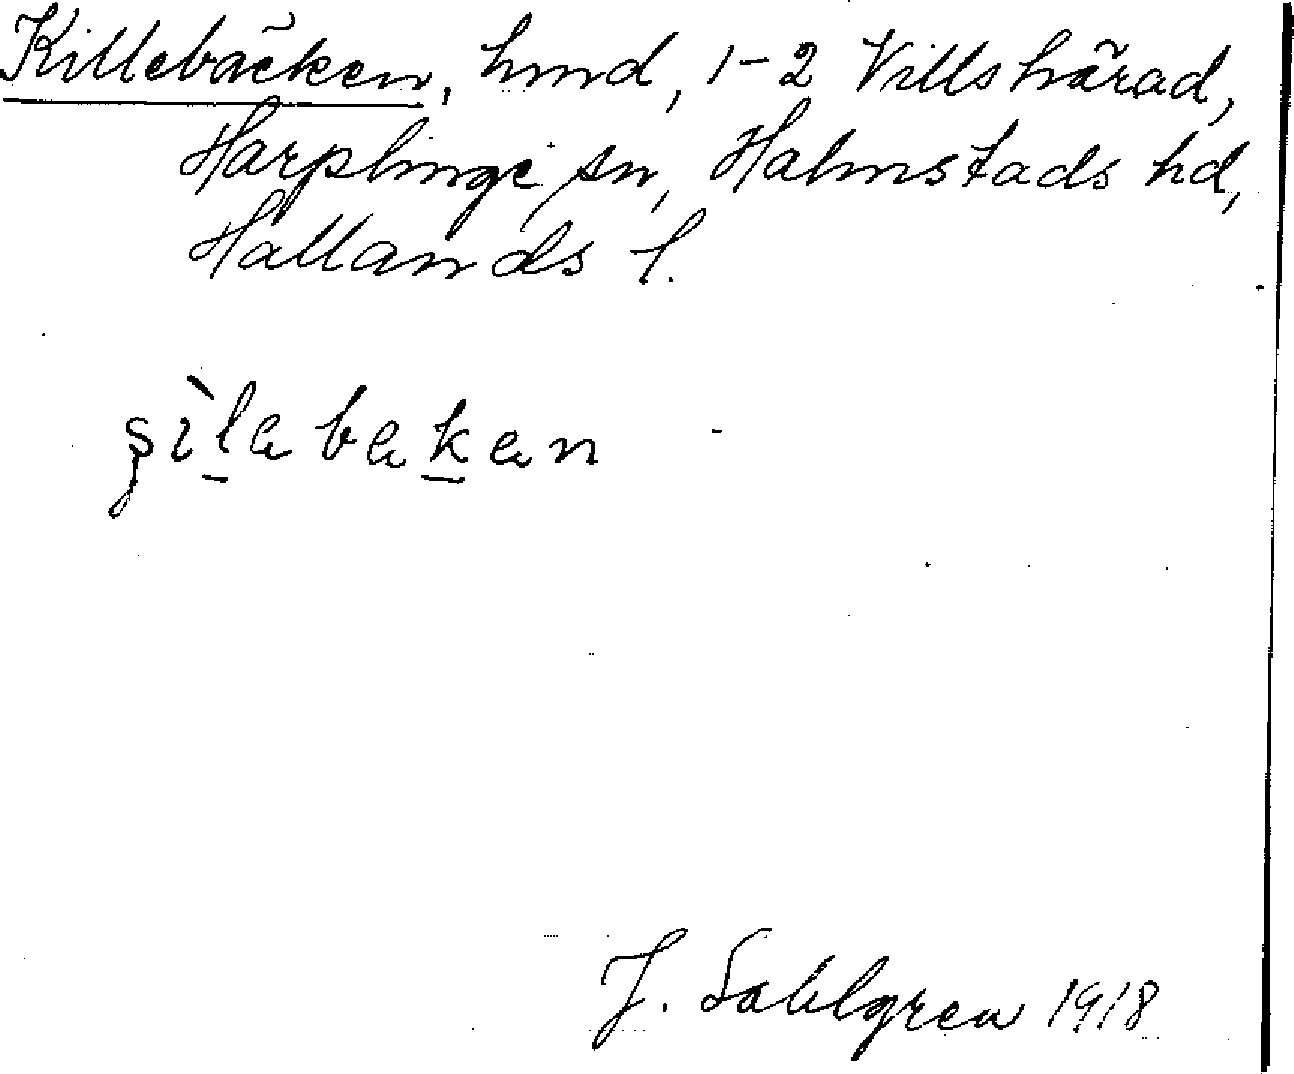 Killebäcken, hmd, 1-2 Villshärad,
Harplinge sn, Halmstads hd,
Hallands l.
şìlabakan
J. Sahlgren 1918